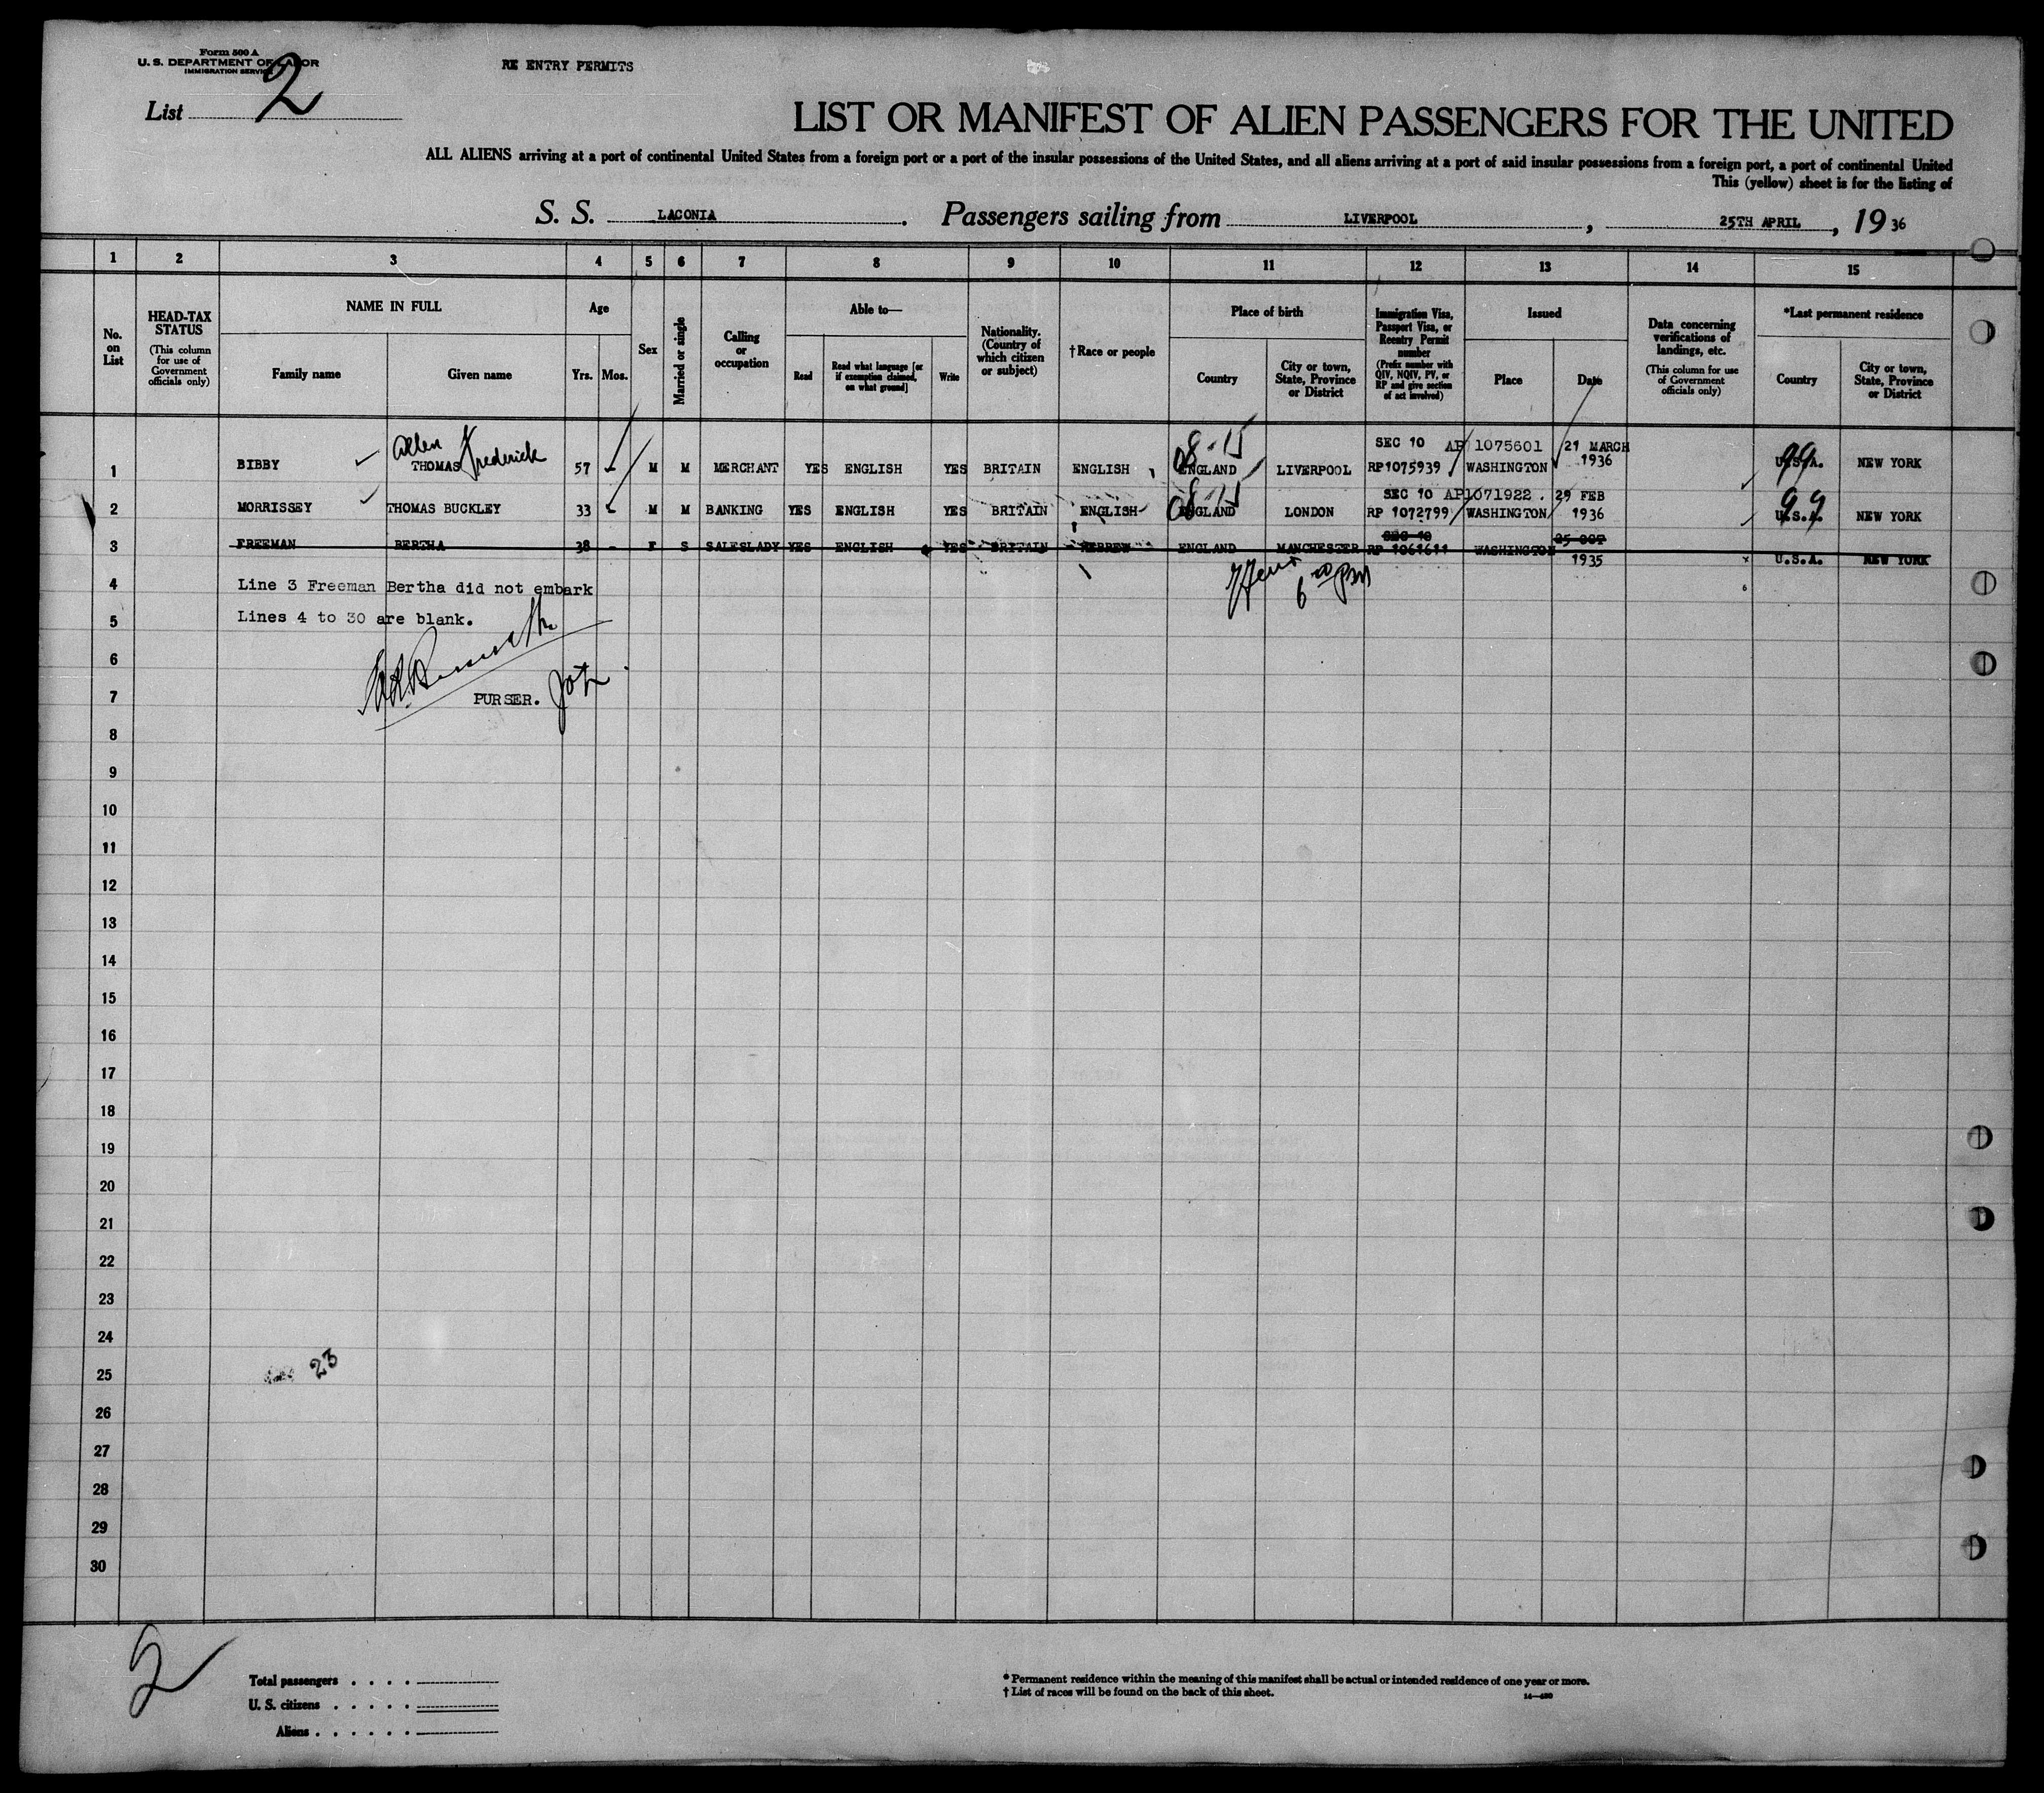 Form 500 A
U. S. DEPARTMENT OF LABOR
IMMIGRATION SERVICE
RE ENTRY PERMITS
List 2
LIST OR MANIFEST OF ALIEN PASSENGERS FOR THE UNITED
ALL ALIENS arriving at a port of continental United States from a foreign port or a port of the insular possessions of the United States, and all aliens arriving at a port of said insular possessions from a foreign port, a port of continental United
This (yellow) sheet is for the listing of
S. S. LACONIA. Passengers sailing from LIVERPOOL, 25TH APRIL, 1936
1 2 3 4 5 6 7 8 9 10 11 12 13 14 15
No. on List
HEAD-TAX STATUS
(This column for use of Government officials only)
NAME IN FULL
Family name
Given name
Age
Yrs. Mos.
Sex
Married or single
Calling or occupation
Able to—
Read
Read what language [or if exemption claimed, on what ground]
Write
Nationality. (Country of which citizen or subject)
†Race or people
Place of birth
Country
City or town, State, Province or District
Immigration Visa, Passport Visa, or Reentry Permit number
(Prefix number with QIV, NQIV, PV, or RP and give section of act involved)
Issued
Place
Date
Data concerning verifications of landings, etc.
(This column for use of Government officials only)
*Last permanent residence
Country
City or town, State, Province or District
Allen Frederick 08-15 SEC 10 AP 1075601 21 MARCH 99
1 BIBBY THOMAS 57 - M M MERCHANT YES ENGLISH YES BRITAIN ENGLISH ENGLAND LIVERPOOL RP1075939 WASHINGTON 1936 U.S.A. NEW YORK
08-15 SEC 10 AP1071922. 29 FEB 99
2 MORRISSEY THOMAS BUCKLEY 33 - M M BANKING YES ENGLISH YES BRITAIN ENGLISH ENGLAND LONDON RP 1072799 WASHINGTON 1936 U.S.A. NEW YORK
SEC 10 25 OCT
3 FREEMAN BERTHA 38 - F S SALESLADY YES ENGLISH YES BRITAIN HEBREW ENGLAND MANCHESTER RP 1061611 WASHINGTON 1935 U.S.A. NEW YORK
4 Line 3 Freeman Bertha did not embark
5 Lines 4 to 30 are blank.
6
7 PURSER.
8
9
10
11
12
13
14
15
16
17
18
19
20
21
22
23
24
25 23
26
27
28
29
30
2
Total passengers . . . .
U. S. citizens . . . . .
Aliens . . . . . .
* Permanent residence within the meaning of this manifest shall be actual or intended residence of one year or more.
† List of races will be found on the back of this sheet.
14—430